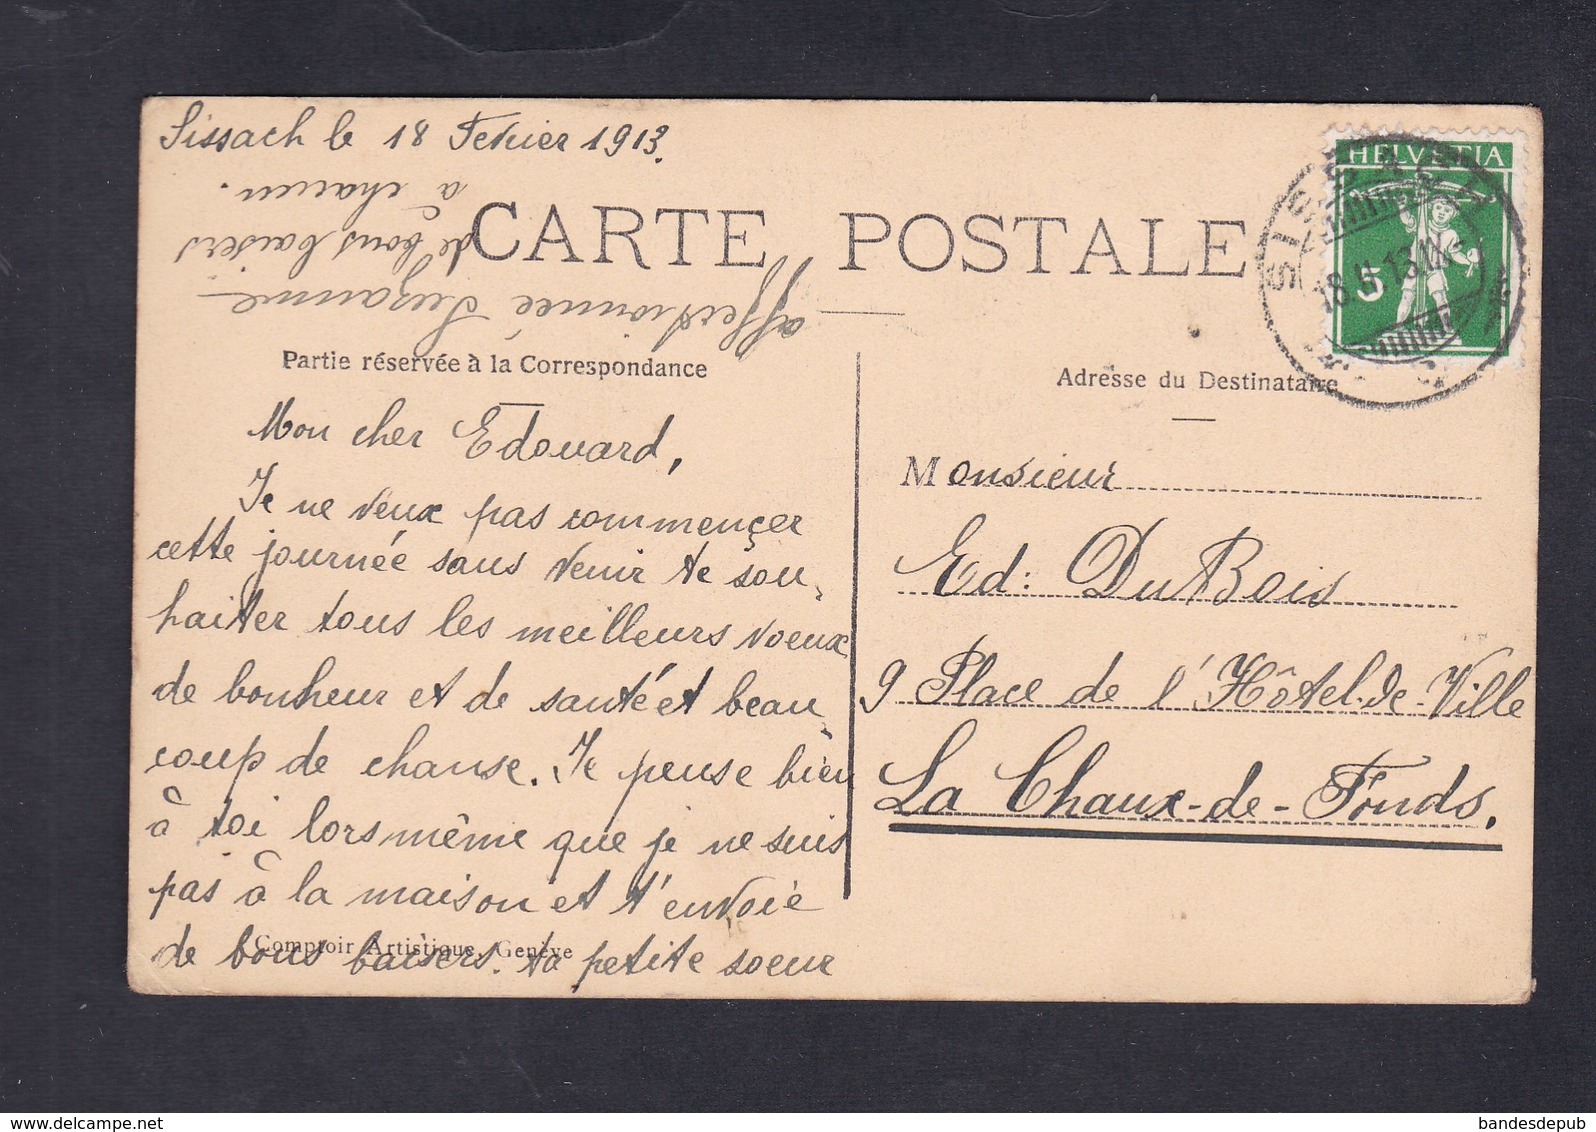 Sissach le 18 Fevrier 1913.
CARTE POSTALE
HELVETIA
5
SISSACH
18.II.13.IX
Partie réservée à la Correspondance
Adresse du Destinataire
Mon cher Edouard,
Je ne veux pas commençer
cette journée sans venir te sou,
haiter tous les meilleurs voeux
de bonheur et de santé et beau
coup de chanse. Je pense bien
à toi lorsmême que je ne suis
pas à la maison et t'envoie
de bons baisers. ta petite soeur
affectionnée Suzanne
de bons baisers
à chacun.
Comptoir Artistique, Genève
Monsieur
Ed: DuBois
9 Place de l'Hôtel-de-Ville
La Chaux-de-Fonds.
delcampe.net
bandesdepub